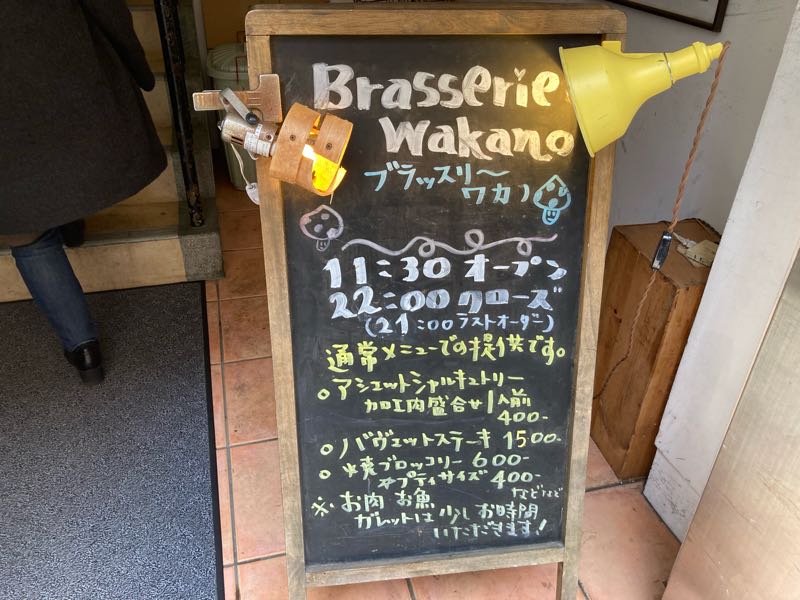 Brasserie
Wakano
ブラッスリ〜
ワカノ
11:30 オープン
22:00 クローズ
(21:00 ラストオーダー)
通常メニューでの提供です。
○アシェットシャルキュトリー
加工肉盛合せ1人前
400-
○バヴェットステーキ 1500-
○焼ブロッコリー 600-
☆プティサイズ 400-
などなど
※お肉 お魚
ガレットは少しお時間
いただきます!